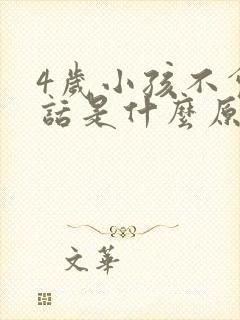 4歲小孩不會
話是什麼原
文華